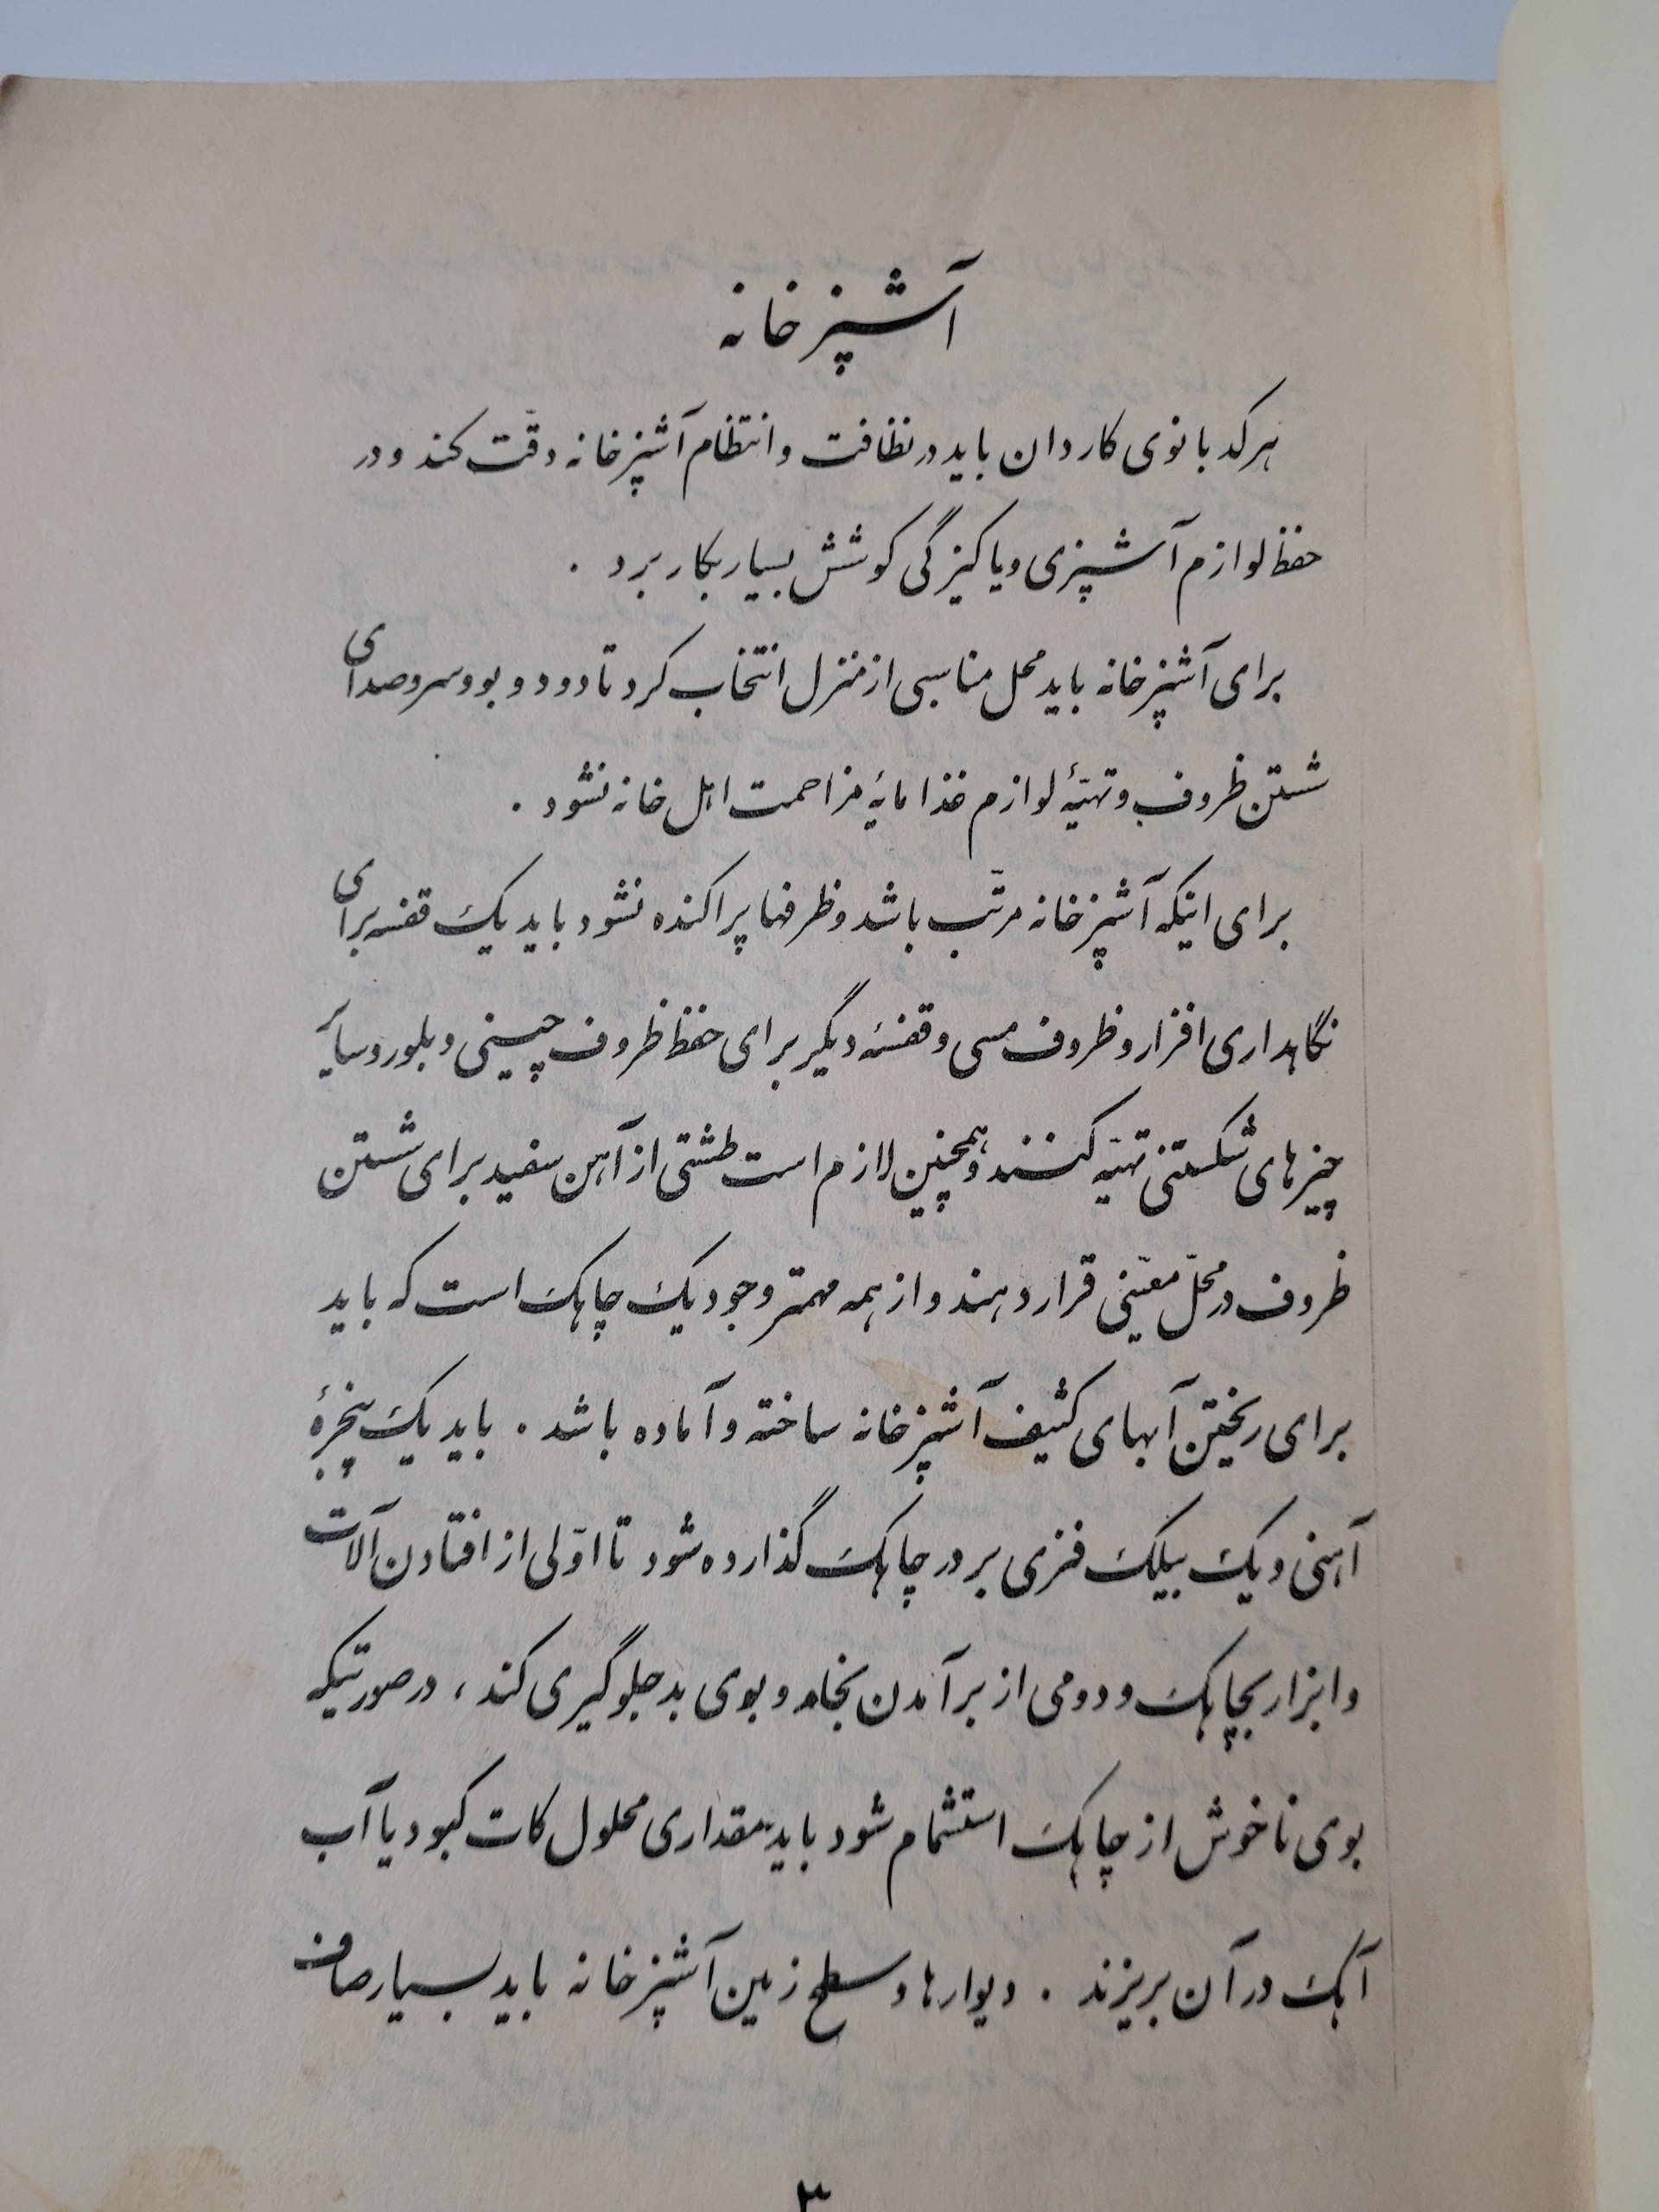 آشپزخانه
هر کدبانوی کاردان باید در نظافت و انتظام آشپزخانه دقّت کند و در
حفظ لوازم آشپزی و پاکیزگی کوشش بسیار بکار برد .
برای آشپزخانه باید محل مناسبی از منزل انتخاب کرد تا دود و بو و سر و صدای
شستن ظروف و تهیّهٔ لوازم غذا مایهٔ مزاحمت اهل خانه نشود .
برای اینکه آشپزخانه مرتّب باشد و ظرفها پراکنده نشود باید یک قفسه برای
نگاهداری افزار و ظروف مسی و قفسهٔ دیگر برای حفظ ظروف چینی و بلور و سایر
چیزهای شکستنی تهیّه کنند و همچنین لازم است طشتی از آهن سفید برای شستن
ظروف در محلّ معیّنی قرار دهند و از همه مهمتر وجود یک چاهک است که باید
برای ریختن آبهای کثیف آشپزخانه ساخته و آماده باشد . باید یک پنجرهٔ
آهنی و یک بیلک فنری بر در چاهک گذارده شود تا اوّلی از افتادن آلات
و ابزار بچاهک و دومی از برآمدن بخار و بوی بد جلوگیری کند ، در صورتیکه
بوی ناخوش از چاهک استشمام شود باید مقداری محلول کات کبود یا آب
آهک در آن بریزند . دیوارها و سطح زمین آشپزخانه باید بسیار صاف
۳